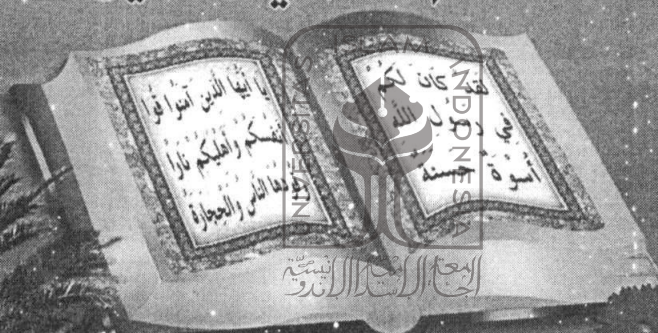 لقد كان لكم
في رسول الله
أسوة حسنة
يا أيها الذين آمنوا قوا
أنفسكم وأهليكم نارا
وقودها الناس والحجارة
UNIVERSITAS
ISLAM
INDONESIA
الجامعة الإسلامية الإندونيسية